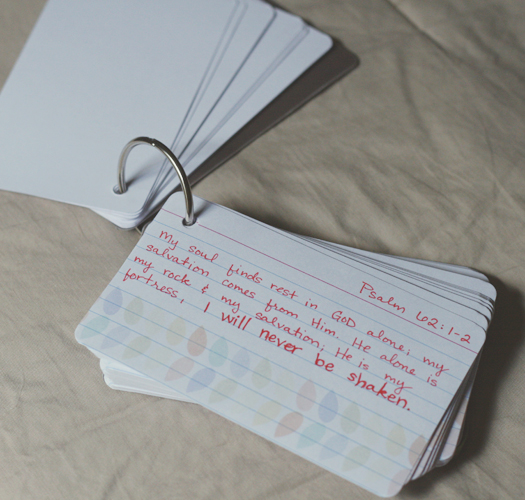 Psalm 62:1-2
my soul finds rest in GOD alone; my
salvation comes from Him. He alone is
my rock & my salvation; He is my
fortress, I will never be shaken.